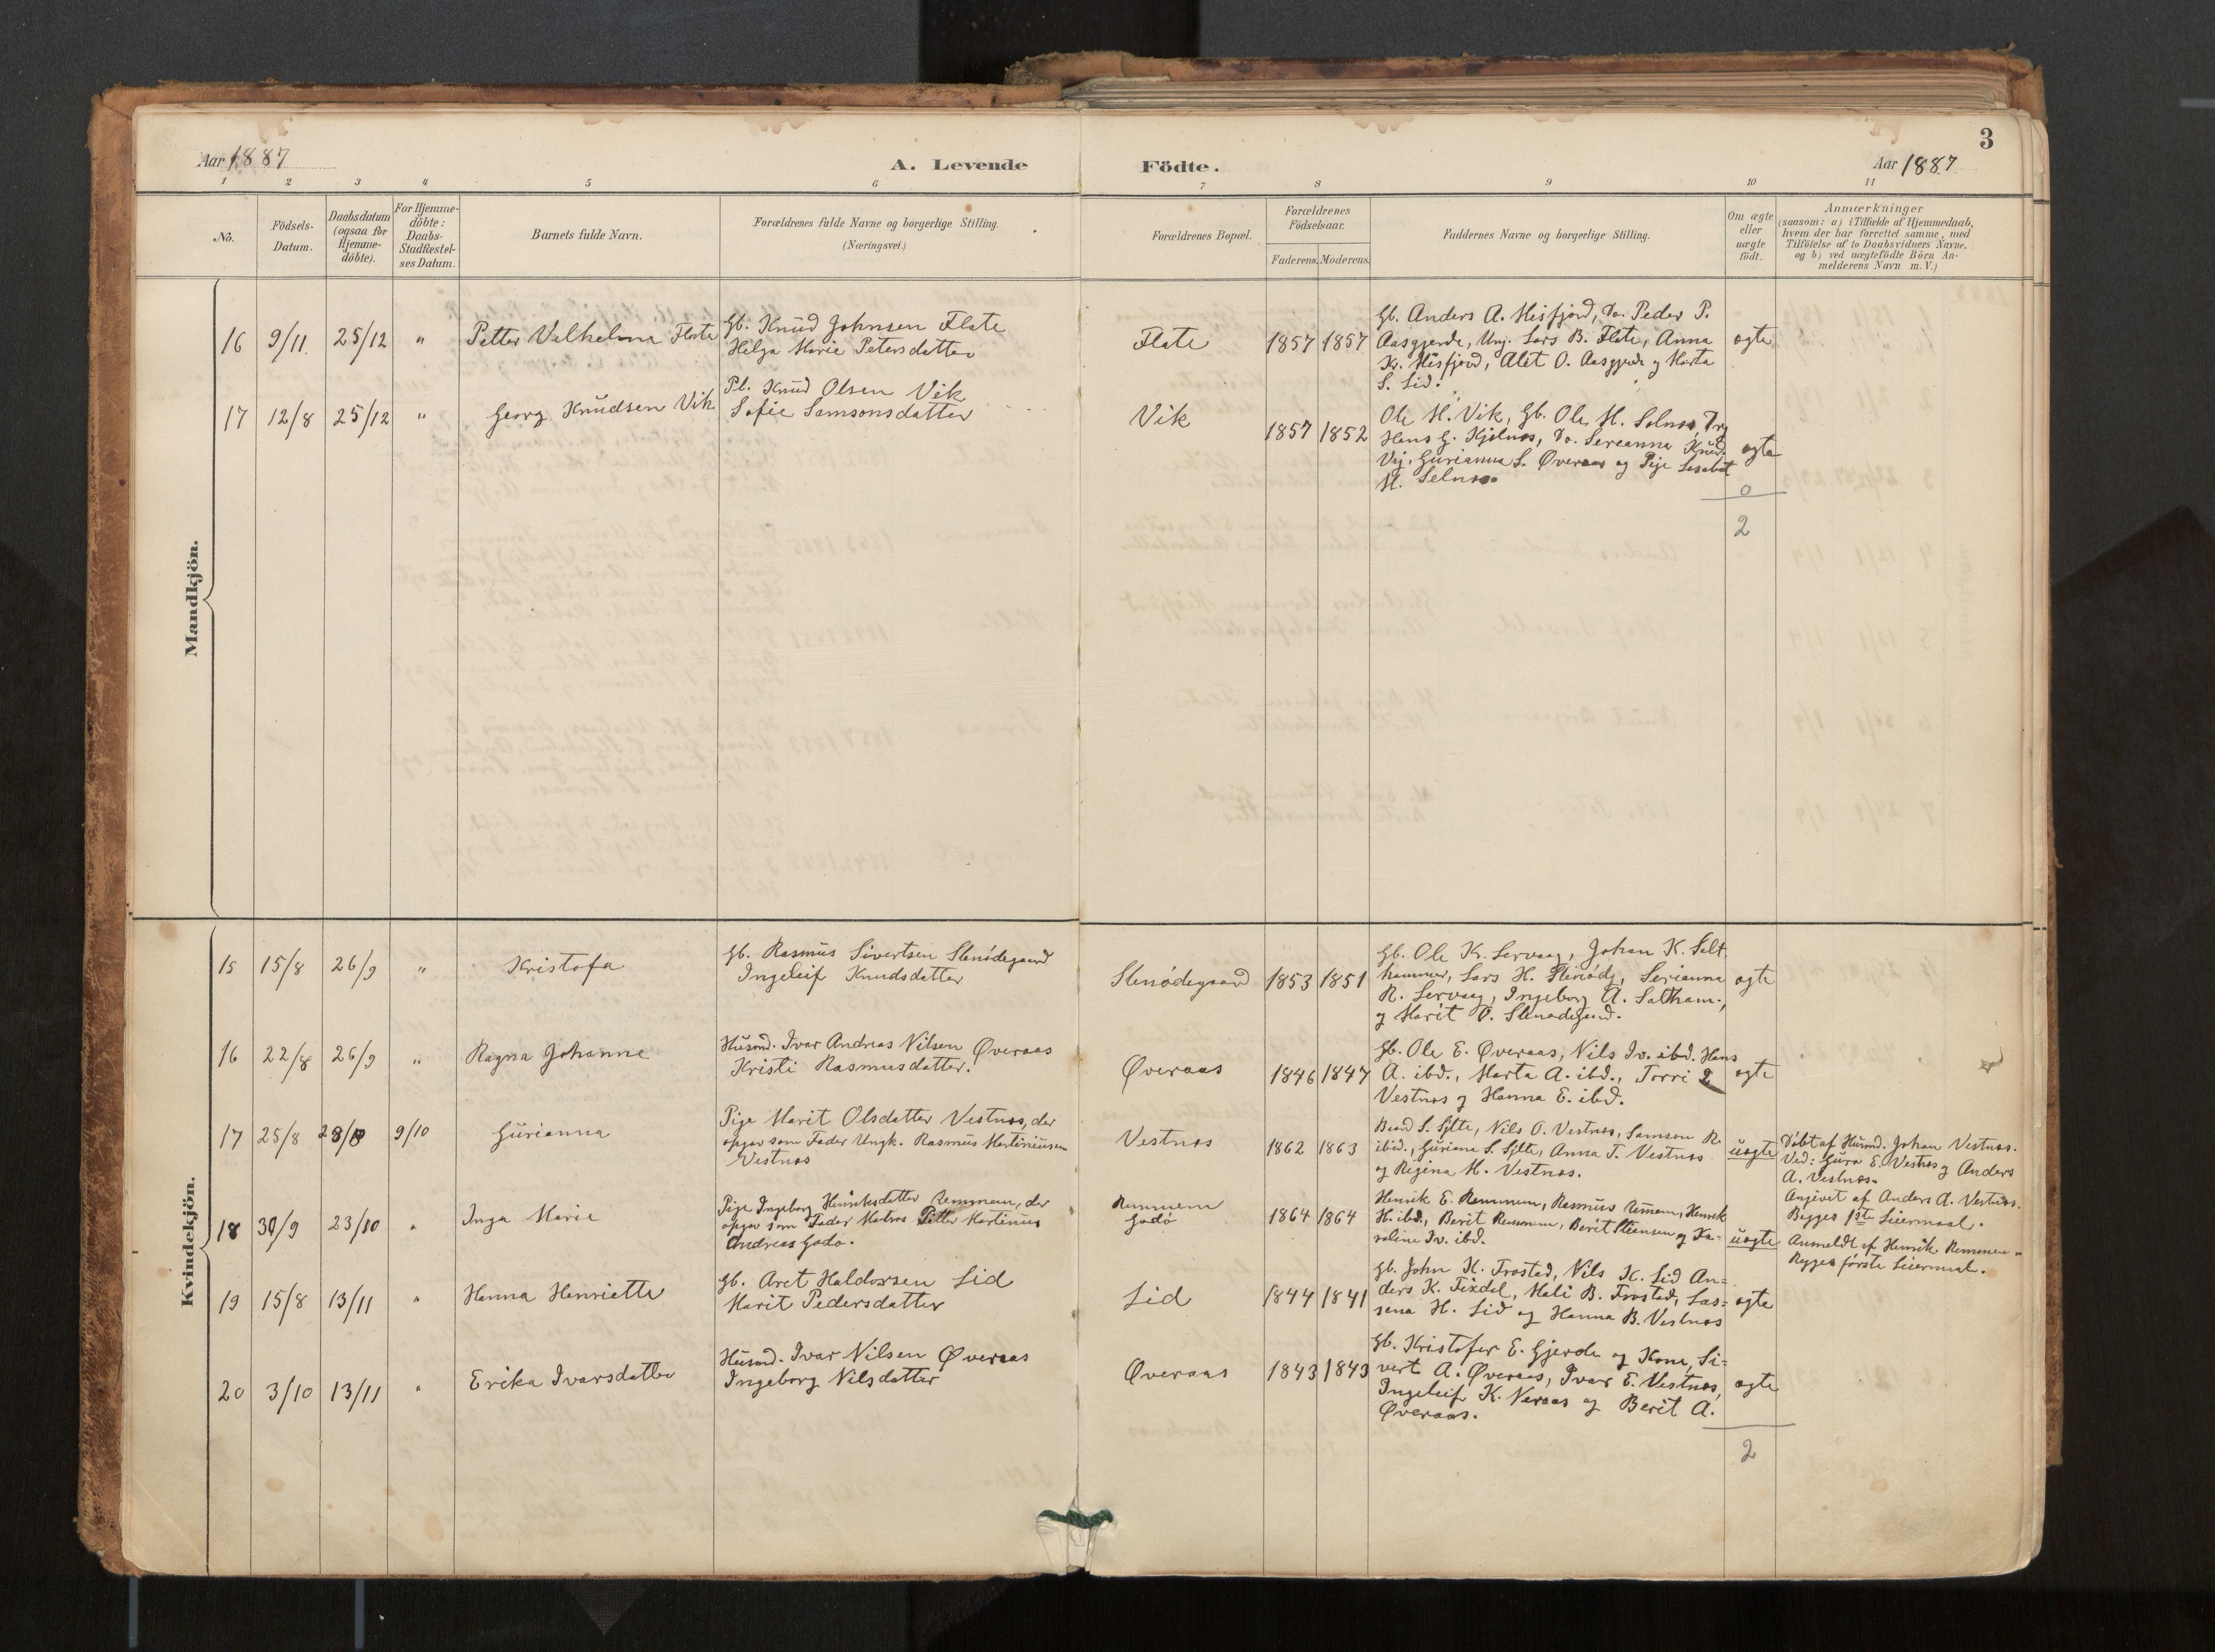 3
Aar 1887
A. Levende
Födte.
Aar 1887
1 2 3 4 5 6 7 8 9 10 11
No.
Födsels-
Datum.
Daabsdatum
(ogsaa for
Hjemme-
döbte).
For Hjemme-
döbte:
Daabs-
Stadfæstel-
ses Datum.
Barnets fulde Navn.
Forældrenes fulde Navne og borgerlige Stilling.
(Næringsvei.)
Forældrenes Bopæl.
Forældrenes
Födselsaar.
Faderens. Moderens.
Faddernes Navne og borgerlige Stilling.
Om ægte
eller
uægte
födt.
Anmærkninger
(saasom: a) i Tilfælde af Hjemmedaab,
hvem der har forrettet samme, med
Tilföielse af to Daabsvidners Navne,
og b) ved uægtefödte Börn An-
melderens Navn m. V.)
Mandkjön.
16 9/11. 25/12 " Petter Vilhelma Flate
Gb. Knud Johnsen Flate
Helga Marie Petersdatter
Flate 1857 1857
Gb. Anders A. Misfjord, Do. Peder P.
Aasgjerde, Ung. Lars B. Flate, Anna
K. Misfjord, Alet O. Aasgjerde og Marta
S. Lid.
ægte
17 12/8 25/12 " Georg Knudsen Vik
Pl. Knud Olsen Vik
Sofie Samsonsdatter
Vik 1857 1852
Ole M. Vik, Gb. Ole M. Selnæs,
Hans G. Kjelnæs, Do. Sereanna Knud.
Vig, Gurianna S. Øveraas og Pige Lisabet
M. Selnæs.
ægte
0
2
Kvindekjön.
15 15/8 26/9 " Kristofa
Gb. Rasmus Sivertsen Stenödegaard
Ingeleif Knudsdatter
Stenödegaard 1853 1851
Gb. Ole K. Servaag, Johan K. Salt
hammer, Lars H. Stenödg, Serianna
R. Servaag, Ingeborg A. Saltham.,
og Marit O. Stenødegaard.
ægte
16 22/8 26/9 " Ragna Johanne
Husmd. Ivar Andreas Nilsen Øveraas
Kristi Rasmusdatter.
Øveraas 1846 1847
Gb. Ole E. Øveraas, Nils Iv. ibd. Hans
A. ibd., Marta A. ibd., Torri
Vestnæs og Hanna E. ibd.
ægte
17 25/8 28/8 9/10 Gurianna
Pige Marit Olsdatter Vestnæs, der
opgav som Fader Ungk. Rasmus Martiniussen
Vestnæs
Vestnæs 1862 1863
S. Sylte, Nils O. Vestnæs, Samson R.
ibid., Guriana S. Sylte, Anna T. Vestnæs
og Regina M. Vestnæs.
uægte
Döbt af Husmd. Johan Vestnæs.
Vid: Guro E. Vestnæs og Anders
A. Vestnæs.
Angivet af Anders A. Vestnæs.
Begges 1ste Leiermaal.
18 30/9 23/10 " Inga Marie
Pige Ingeborg Henriksdatter Remmem, der
opgav som Fader Matros Petter Martinus
Andreas Godø.
Remmem
Godø
1864 1864
Henrik E. Remmem, Rasmus Remem, Henrik
H. ibd., Berit Remmem, Berit Steensen og Ka-
roline Iv. ibd.
uægte
Anmeldt af Henrik Remmem
Begges förste Leiermaal.
19 15/8 13/11 " Hanna Henriette
Gb. Aret Haldorsen Lid
Marit Pedersdatter
Lid 1844 1841
Gb. John K. Trostad, Nils K. Lid An=
ders K. Fixdal, Mali B. Trostad, Las=
sena H. Lid og Hanna B. Vestnæs
ægte
20 3/10 13/11 " Erika Ivarsdatter
Husmd. Ivar Nilsen Øveraas
Ingeborg Nilsdatter
Øveraas 1843 1843
Gb. Kristofer E. Gjerde og Kone, Si=
vert A. Øveraas, Ivar E. Vestnæs,
Ingeleif K. Veraas og Berit A.
Øveraas.
ægte
2